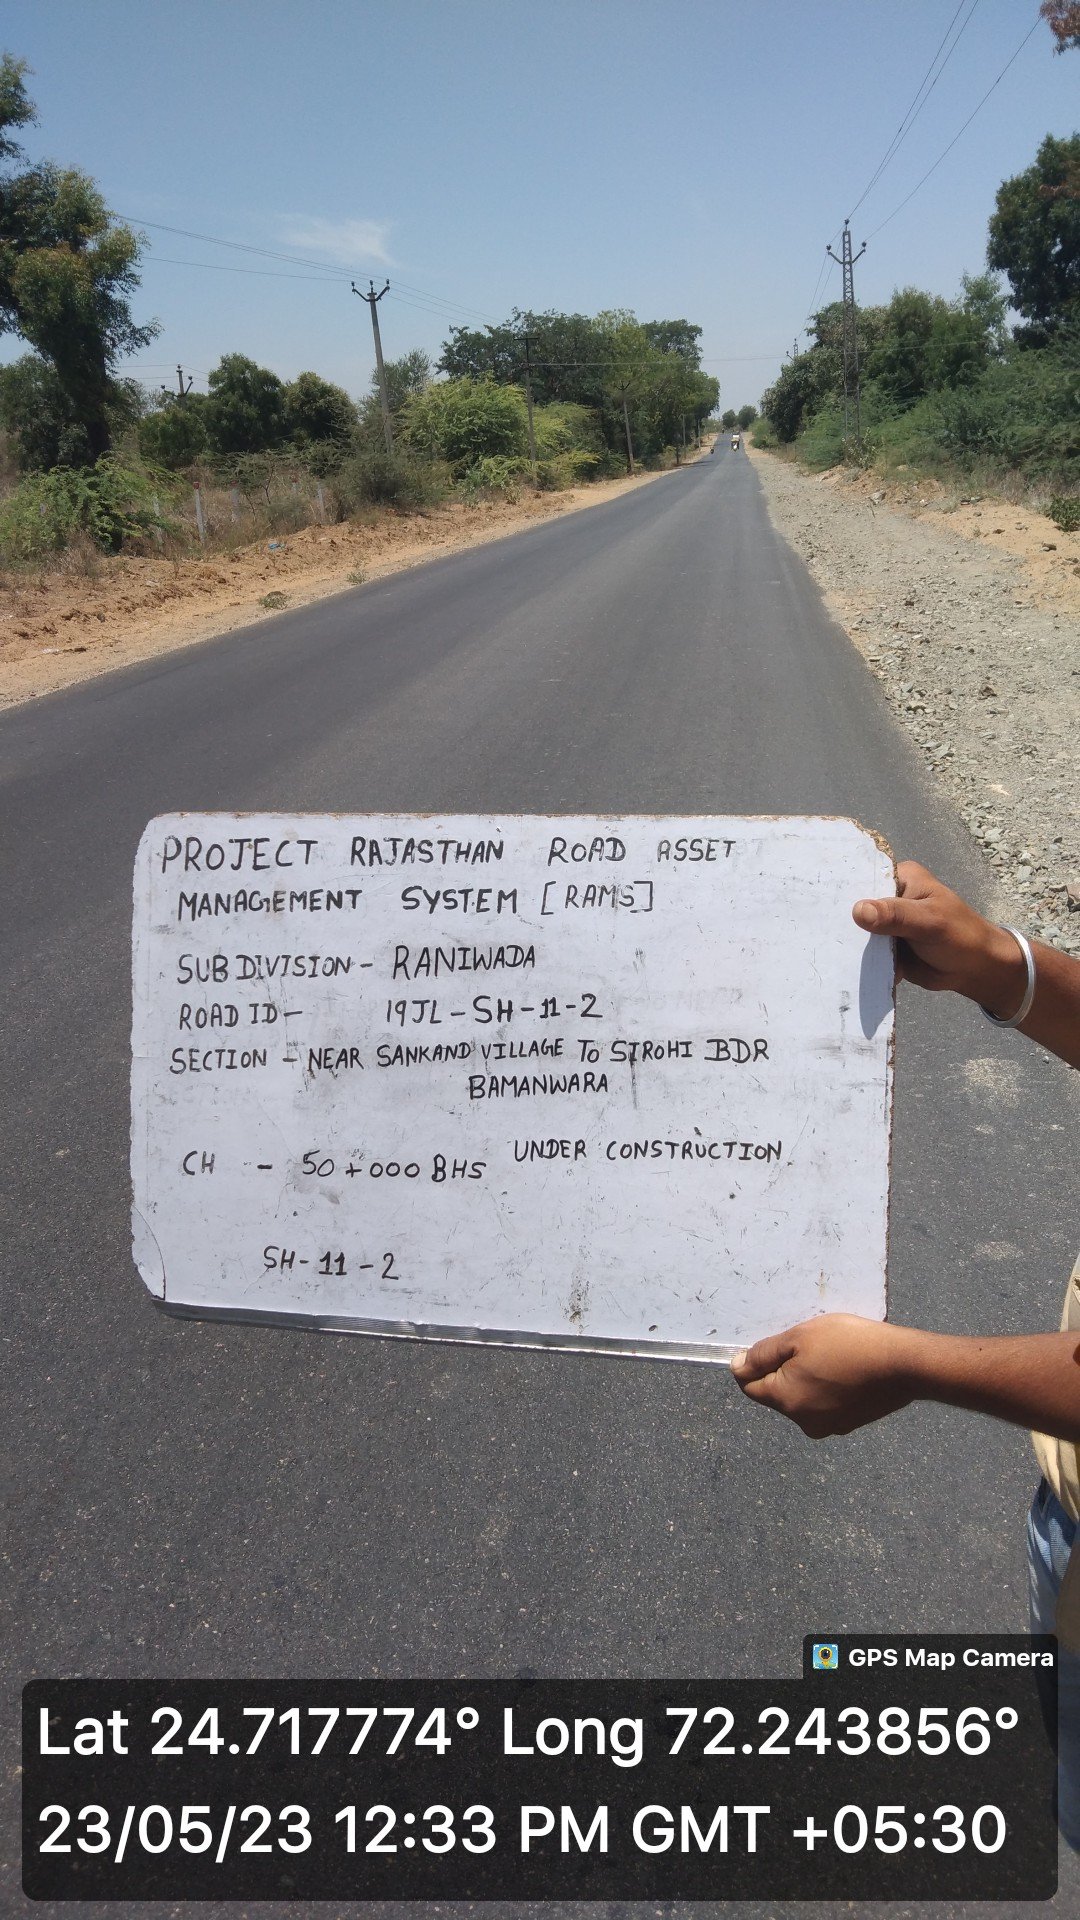 PROJECT RAJASTHAN ROAD ASSET
MANAGEMENT SYSTEM [RAMS]
SUB DIVISION - RANIWADA
ROAD ID - 19JL-SH-11-2
SECTION - NEAR SANKAND VILLAGE TO SIROHI BDR
BAMANWARA
CH - 50+000 BHS UNDER CONSTRUCTION
SH-11-2
GPS Map Camera
Lat 24.717774° Long 72.243856°
23/05/23 12:33 PM GMT +05:30